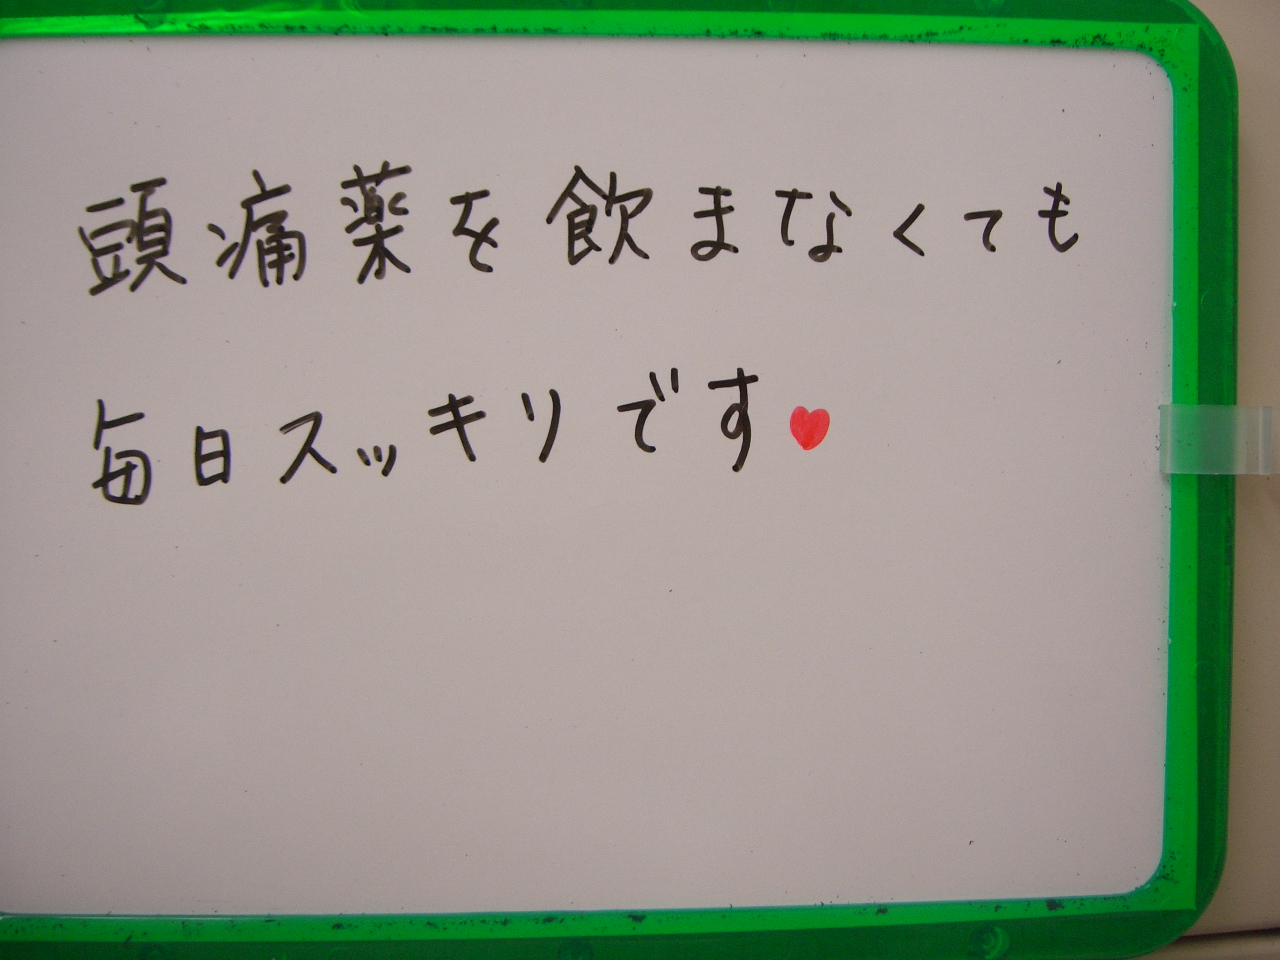 頭痛薬を飲まなくても
毎日スッキリです♥